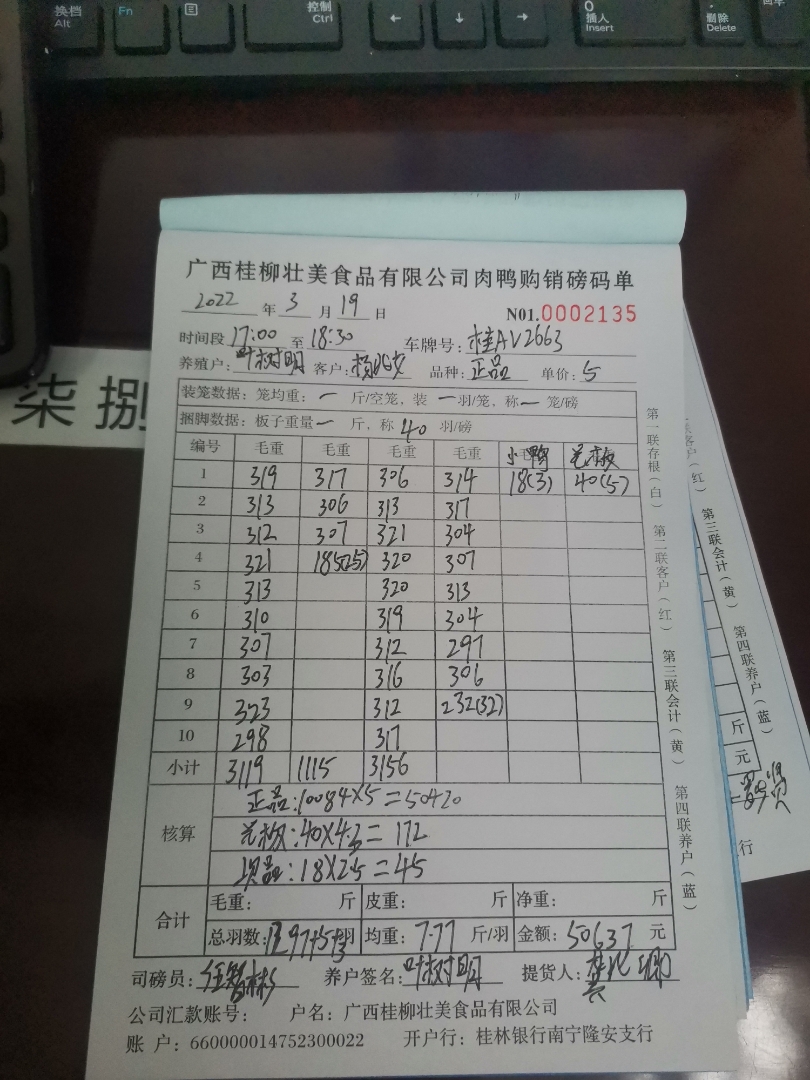 换档 Alt
Fn
控制 Ctrl
←
↓
→
0 插人 Insert
. 删除 Delete
柒捌
广西桂柳壮美食品有限公司肉鸭购销磅码单
2022 年 3 月 19 日 N01.0002135
时间段 17:00 至 18:30 车牌号: 桂AV2663
养殖户: 叶树明 客户: 品种: 正品 单价: 5
装笼数据: 笼均重: 一 斤/空笼, 装 一 羽/笼, 称 一 笼/磅
捆脚数据: 板子重量 一 斤, 称 40 羽/磅
编号 毛重 毛重 毛重 毛重 小鸭
1 319 317 306 314 18(3) 40(5)
2 313 306 313 317
3 312 307 321 304
4 321 185(25) 320 307
5 313 320 313
6 310 319 304
7 307 312 297
8 303 316 306
9 323 312 232(32)
10 298 317
小计 3119 1115 3156
核算
正品:10084×5=50420
:40×4.3=172
:18×2.5=45
合计
毛重: 斤 皮重: 斤 净重: 斤
总羽数: 羽 均重: 7.77 斤/羽 金额: 50637 元
司磅员: 养户签名: 叶树明 提货人:
公司汇款账号: 户名: 广西桂柳壮美食品有限公司
账 户: 660000014752300022 开户行: 桂林银行南宁隆安支行
第一联存根(白) 第二联客户(红) 第三联会计(黄) 第四联养户(蓝)
联客户(红) 第三联会计(黄) 第四联养户(蓝)
斤
元
行